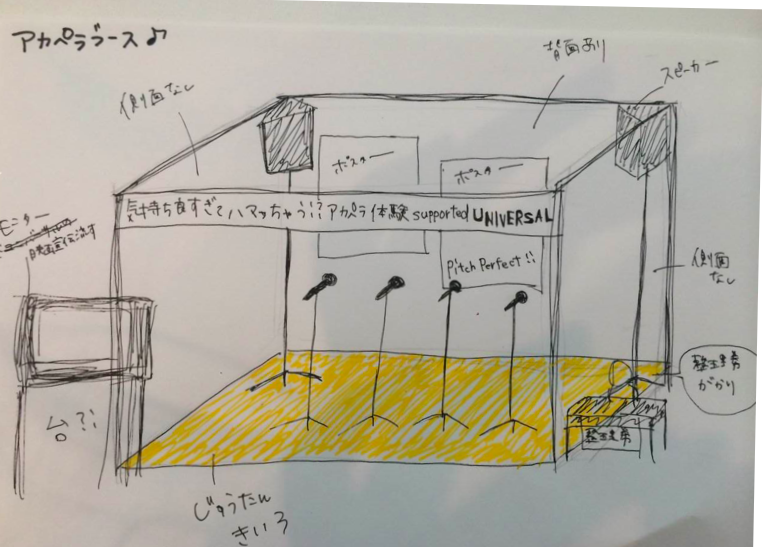 アカペラブース♪
背面あり
スピーカー
側面なし
ポスター
ポスター
気持ち良すぎてハマッちゃう!? アカペラ体験 supported UNIVERSAL
モニター
映画宣伝流す
Pitch Perfect!!
側面
なし
がかり
台?!
じゅうたん
きいろ